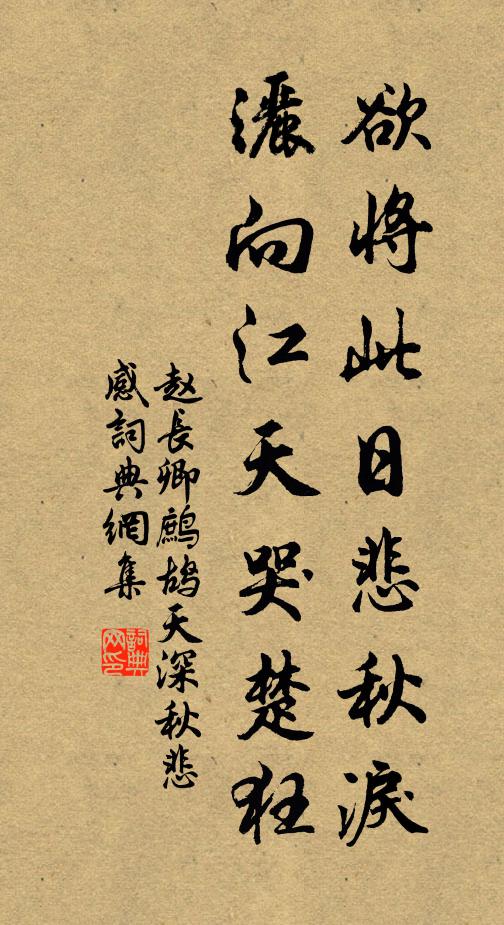 欲將此日悲秋淚
灑向江天哭楚狂
赵長卿鷓鴣天深秋悲
感詞典網集
詞典
网印